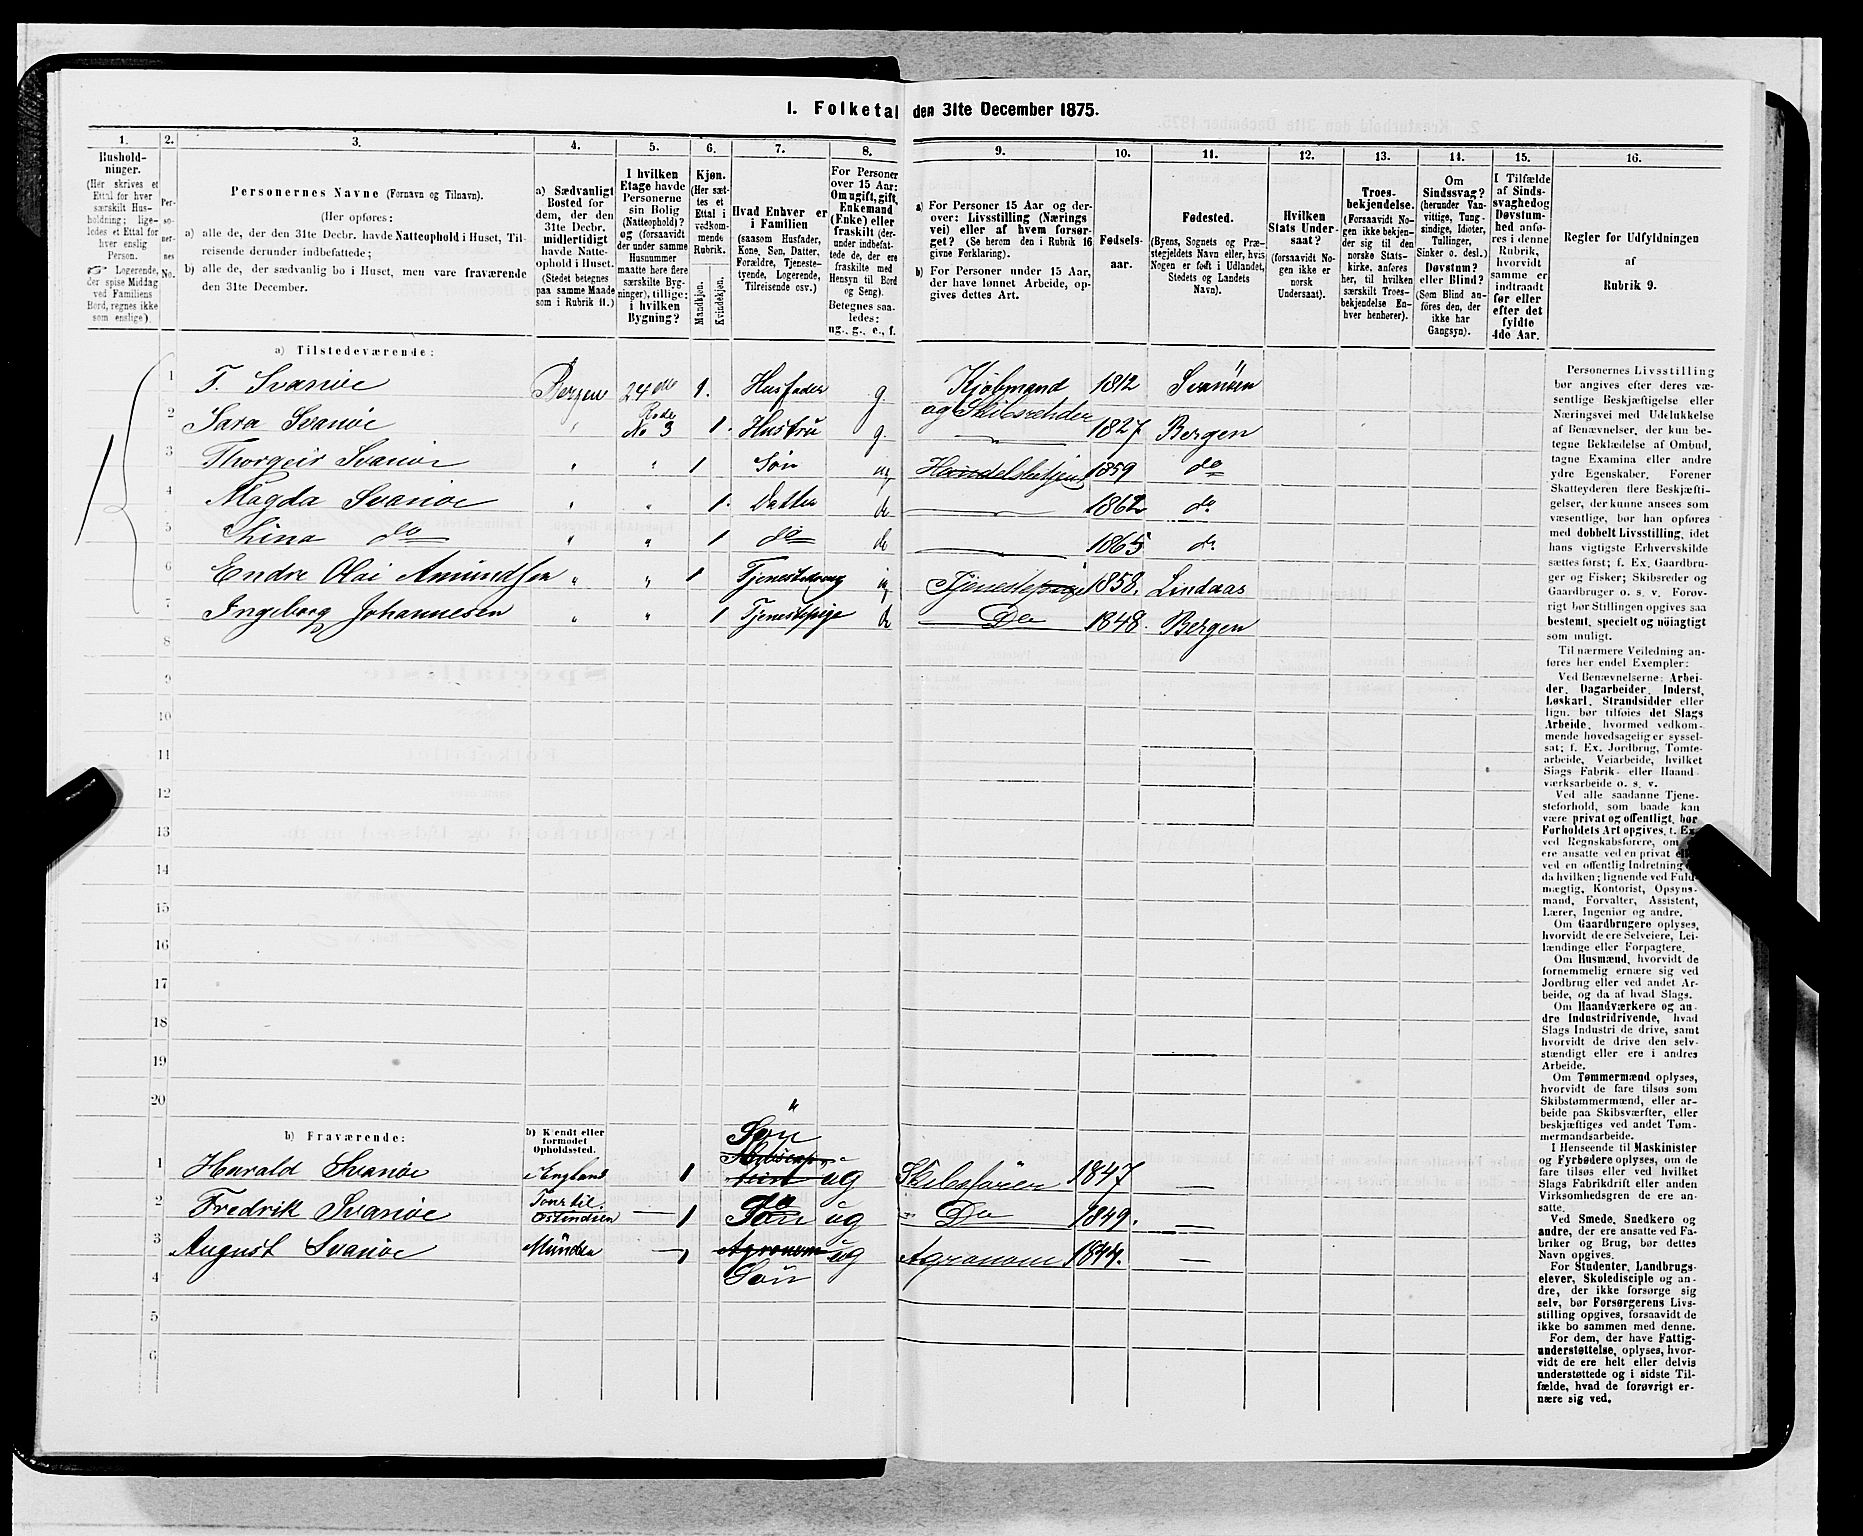 1. Folketal den 31te December 1875.
1.
Husholdninger.
(Her skrives et
Ettal for hver
særskilt Husholdning;
ligeledes et Ettal for
hver enslig
Person.
☞ Logerende,
der spise Middag
ved Familiens
Bord, regnes ikke
som enslige).
2.
Personernes
No.
3.
Personernes Navne (Fornavn og Tilnavn).
(Her opføres:
a) alle de, der den 31te Decbr. havde Natteophold i Huset, Tilreisende derunder indbefattede;
b) alle de, der sædvanlig bo i Huset, men vare fraværende
den 31te December.
4.
a) Sædvanligt
Bosted for
dem, der den
31te Decbr.
midlertidigt
havde Natteophold i Huset.
(Stedet betegnes
paa samme Maade
som i Rubrik 11.)
5.
I hvilken
Etage havde
Personerne
sin Bolig
(Natteophold)?
og (forsaavidt
der under samme
Husnummer
maatte høre flere
særskilte Bygninger), tillige:
i hvilken
Bygning?
6.
Kjøn.
(Her sættes et
Ettal i
vedkommende
Rubrik.
Mandkjøn.
Kvindekjøn.
7.
Hvad Enhver er
i Familien
(saasom Husfader,
Kone, Søn, Datter,
Forældre, Tjenestetyende, Logerende,
Tilreisende osv.)
8.
For Personer
over 15 Aar:
Om ugift, gift,
Enkemand
(Enke) eller
fraskilt (derunder indbefattede, de, der ere
fraskilte med
Hensyn til Bord
og Seng).
Betegnes saaledes:
ug., g., e., f.
9.
a) For Personer 15 Aar og derover: Livsstilling (Næringsvei) eller af hvem forsørget? (Se herom den i Rubrik 16
givne Forklaring).
b) For Personer under 15 Aar,
der have lønnet Arbeide, opgives dettes Art.
10.
Fødselsaar.
11.
Fødested.
(Byens, Sognets og Præstegjeldets Navn eller, hvis
Nogen er født i Udlandet,
Stedets og Landets
Navn).
12.
Hvilken
Stats Undersaat?
(forsaavidt Nogen ikke er
norsk
Undersaat).
13.
Troesbekjendelse.
(Forsaavidt Nogen ikke bekjender sig til den
norske Statskirke, anføres
her, til hvilken
særskilt Troesbekjendelse Enhver henhører).
14.
Om
Sindssvag?
(herunder Vanvittige, Tungsindige, Idioter,
Tullinger,
Sinker o. desl.)
Døvstum?
eller Blind?
(Som Blind anføres den, der
ikke har
Gangsyn).
15.
I Tilfælde
af Sindssvaghed og
Døvstumhed anføres i denne
Rubrik,
hvorvidt
samme er
indtraadt
før eller
efter det
fyldte
4de Aar.
16.
Regler for Udfyldningen
af
Rubrik 9.
a) Tilstedeværende:
1 T. Svanøe Bergen 24de 1. Husfader g Kjøbmand 1812 Svanøen
og Skibsrehder
2 Sara Svanøe " Rode No 3 1. Hustru g. — 1827 Bergen
3 Thorgeir Svanøe " " 1 Søn ug Handelsbetjent 1859 do
4 Magda Svanøe " " 1. Datter do — 1862 do
5 do " " 1 do do — 1865 do
6 Endre Olai Amundsen " " 1 Tjenestedreng ug 1858. Lindaas
7 Ingeborg Johannesen " " 1 Tjenestepige do Do 1848. Bergen
8
9
10
11
12
13
14
15
16
17
18
19
20
b) Fraværende:
b) Kjendt eller
formodet
Opholdssted.
Søn
1 Harald Svanøe i England 1 ug Skibsfører 1847 —
2 Fredrik Svanøe Tour til Ostindien — 1 Søn ug " Do 1849. —
3 August Svanøe Münden — 1 Agronom ug Agronom 1844. —
4 Søn
5
6
Personernes Livsstilling
bør angives efter deres væsentlige Beskjæftigelse eller
Næringsvei med Udelukkelse
af Benævnelser, der kun betegne Beklædelse af Ombud,
tagne Examina eller andre
ydre Egenskaber. Forener
Skatteyderen flere Beskjæftigelser, der kunne ansees som
væsentlige, bør han opføres
med dobbelt Livsstilling, idet
hans vigtigste Erhvervskilde
sættes først; f. Ex. Gaardbruger og Fisker; Skibsreder og
Gaardbruger o. s. v. Forøvrigt bør Stillingen opgives saa
bestemt, specielt og nøiagtigt
som muligt.
Til nærmere Veiledning anføres her endel Exempler:
Ved Benævnelserne: Arbeider, Dagarbeider, Inderst,
Løskarl, Strandsidder eller
lign. bør tilføies det Slags
Arbeide, hvormed vedkommende hovedsagelig er sysselsat; f. Ex. Jordbrug, Tomtearbeide, Veiarbeide, hvilket
Slags Fabrik- eller Haandværksarbeide o. s. v.
Ved alle saadanne Tjenesteforhold, som baade kan
være privat og offentligt, bør
Forholdets Art opgives, t. Ex.
ved Regnskabsførere, om
ere ansatte ved en privat
ved en offentlig Indretning
da hvilken; lignende ved Fuldmægtig, Kontorist, Opsynsmand, Forvalter, Assistent,
Lærer, Ingeniør og andre.
Om Gaardbrugere oplyses,
hvorvidt de ere Selveiere, Leilændinge eller Forpagtere.
Om Husmænd, hvorvidt de
fornemmelig ernære sig ved
Jordbrug eller ved andet Arbeide, og da af hvad Slags.
Om Haandværkere og andre Industridrivende, hvad
Slags Industri de drive, samt
hvorvidt de drive den selvstændigt eller ere i andres
Arbeide.
Om Tømmermænd oplyses,
hvorvidt de fare tilsøs som
Skibstømmermænd, eller arbeide paa Skibsværfter, eller
beskjæftiges ved andet Tømmermandsarbeide.
I Henseende til Maskinister
og Fyrbødere oplyses, om de
fare tilsøs eller ved hvilket
Slags Fabrikdrift eller anden
Virksomhedsgren de ere ansatte.
Ved Smede, Snedkere og
andre, der ere ansatte ved Fabriker og Brug, bør dettes
Navn opgives.
For Studenter, Landbrugselever, Skoledisciple og andre, der ikke forsørge sig
selv, bør Forsørgerens Livsstilling opgives, forsaavidt de
ikke bo sammen med denne.
For dem, der have Fattigunderstøttelse, oplyses, hvorvidt de ere helt eller delvis
understøttede og i sidste Tilfælde, hvad de forøvrigt ernære sig ved.